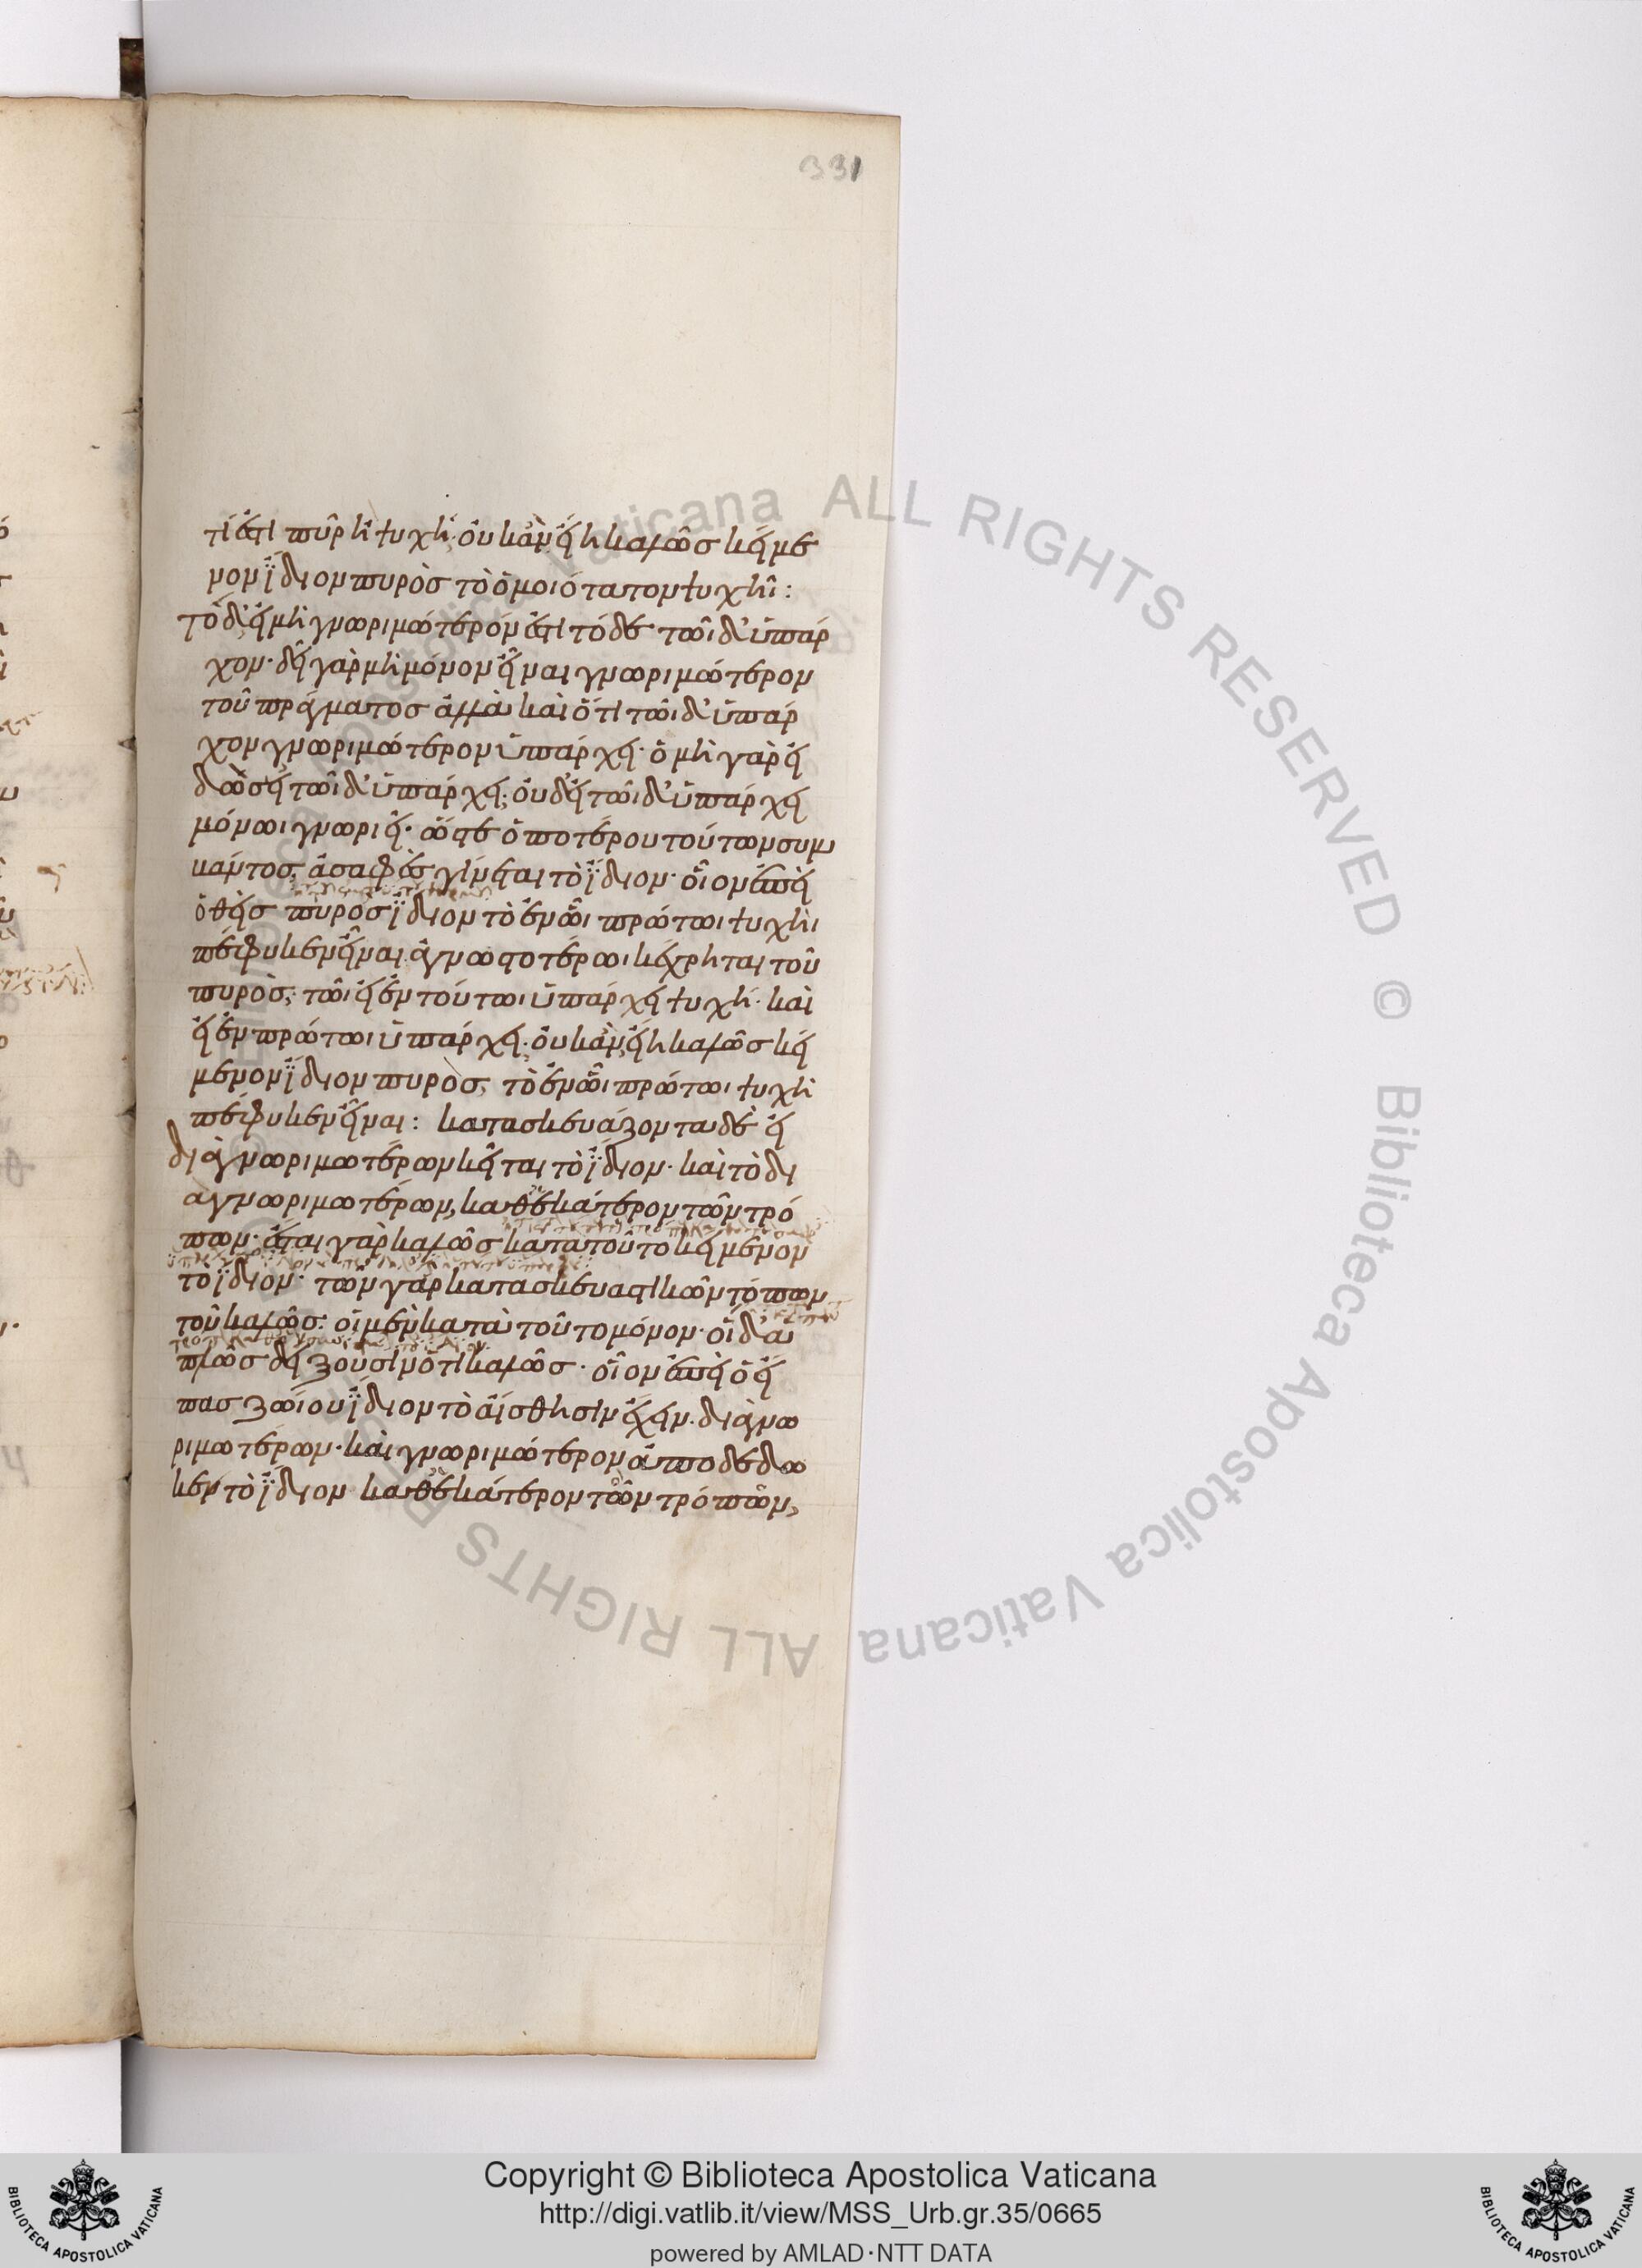 331
τί ἐστι πῦρ ἢ ψυχή· οὐκ ἂν εἴη καλῶς κείμε
νον ἴδιον πυρὸς τὸ ὁμοιότατον ψυχῆι:
τὸ δ' εἰ μὴ γνωριμώτερόν ἐστι τόδε τῶιδ' ὑπάρ
χον· δεῖ γὰρ μὴ μόνον εἶναι γνωριμώτερον
τοῦ πράγματος ἀλλὰ καὶ ὅτι τῶιδ' ὑπάρ
χον γνωριμώτερον ὑπάρχει· ὁ μὴ γὰρ εἰ
δὼς εἰ τῶιδ' ὑπάρχει, οὐδ' εἰ τῶιδ' ὑπάρχει
μόνωι γνωριεῖ· ὥστε ὁποτέρου τούτων συμ
βάντος, ἀσαφὲς γίνεται τὸ ἴδιον· οἷον ἐπεὶ
ὁ θεὶς πυρὸς ἴδιον τὸ ἐν ὧι πρώτωι ψυχὴ
πέφυκεν εἶναι ἀγνωστοτέρωι κέχρηται τοῦ
πυρὸς, τῶι εἰ ἐν τούτωι ὑπάρχει ψυχή· καὶ
εἰ ἐν πρώτωι ὑπάρχει· οὐκ ἂν εἴη καλῶς κεί
μενον ἴδιον πυρὸς, τὸ ἐν ὧι πρώτωι ψυχὴ
πέφυκεν εἶναι: κατασκευάζοντα δὲ εἰ
διὰ γνωριμωτέρων κεῖται τὸ ἴδιον· καὶ τὸ δι
ὰ γνωριμωτέρων, καθ' ἑκάτερον τῶν τρό
πων· ἔσται γὰρ καλῶς κατὰ τοῦτο κείμενον
τὸ ἴδιον· τῶν γὰρ κατασκευαστικῶν τόπων
τοῦ καλῶς· οἱ μὲν κατὰ τοῦτο μόνον· οἱ δ' ἁ
πλῶς δείξουσιν ὅτι καλῶς· οἷον ἐπεὶ ὁ εἴ
πας ζώιου ἴδιον τὸ αἴσθησιν ἔχειν· διὰ γνω
ριμωτέρων· καὶ γνωριμώτερον ἀποδέδω
κεν τὸ ἴδιον καθ' ἑκάτερον τῶν τρόπων,
ALL RIGHTS RESERVED © Biblioteca Apostolica Vaticana
Copyright © Biblioteca Apostolica Vaticana
http://digi.vatlib.it/view/MSS_Urb.gr.35/0665
powered by AMLAD·NTT DATA
BIBLIOTECA APOSTOLICA VATICANA
BIBLIOTECA APOSTOLICA VATICANA